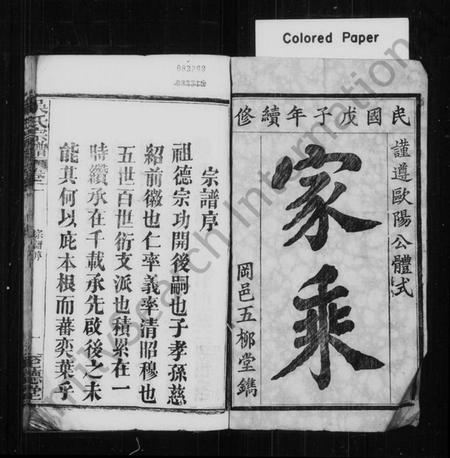 Colored Paper
民國戊子年續修
謹遵歐陽公體式
家乘
岡邑五柳堂鐫
宗譜序
祖德宗功開後嗣也子孝孫慈
紹前徽也仁率義率清昭穆也
五世百世衍支派也積累在一
時纘承在千載承先啟後之未
能其何以庇本根而蕃奕葉乎